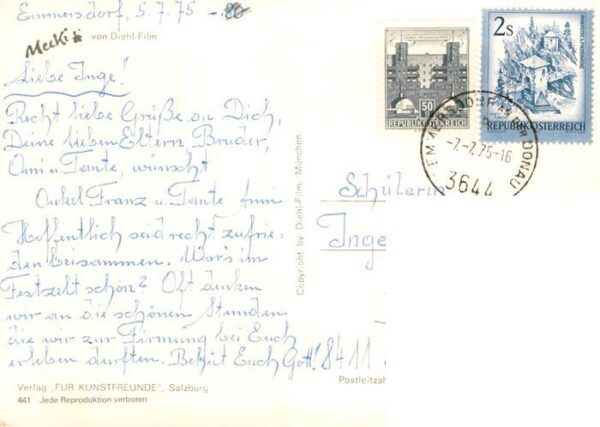 Emmersdorf, 5.7.75 -86
Mecki
von Diehl-Film
Liebe Inge!
Recht liebe Grüße an Dich,
Deine lieben Eltern Bruder,
Omi u Tante, wünscht
Onkel Franz u Tante
Hoffentlich seid recht zufrie-
den beisammen. War's im
Festzelt schön? Oft denken
wir an die schönen Stunden
die wir zur Firmung bei Euch
erleben durften. Behüt Euch Gott!
Verlag „FÜR KUNSTFREUNDE", Salzburg
441 Jede Reproduktion verboten
Copyright by Diehl-Film, München
50
REPUBLIK ÖSTERREICH
2s
REPUBLIK ÖSTERREICH
EMMERSDORF AN DER DONAU
-7.-7.75-16
3644
Schülerin
Inge
8411
Postleitzahl